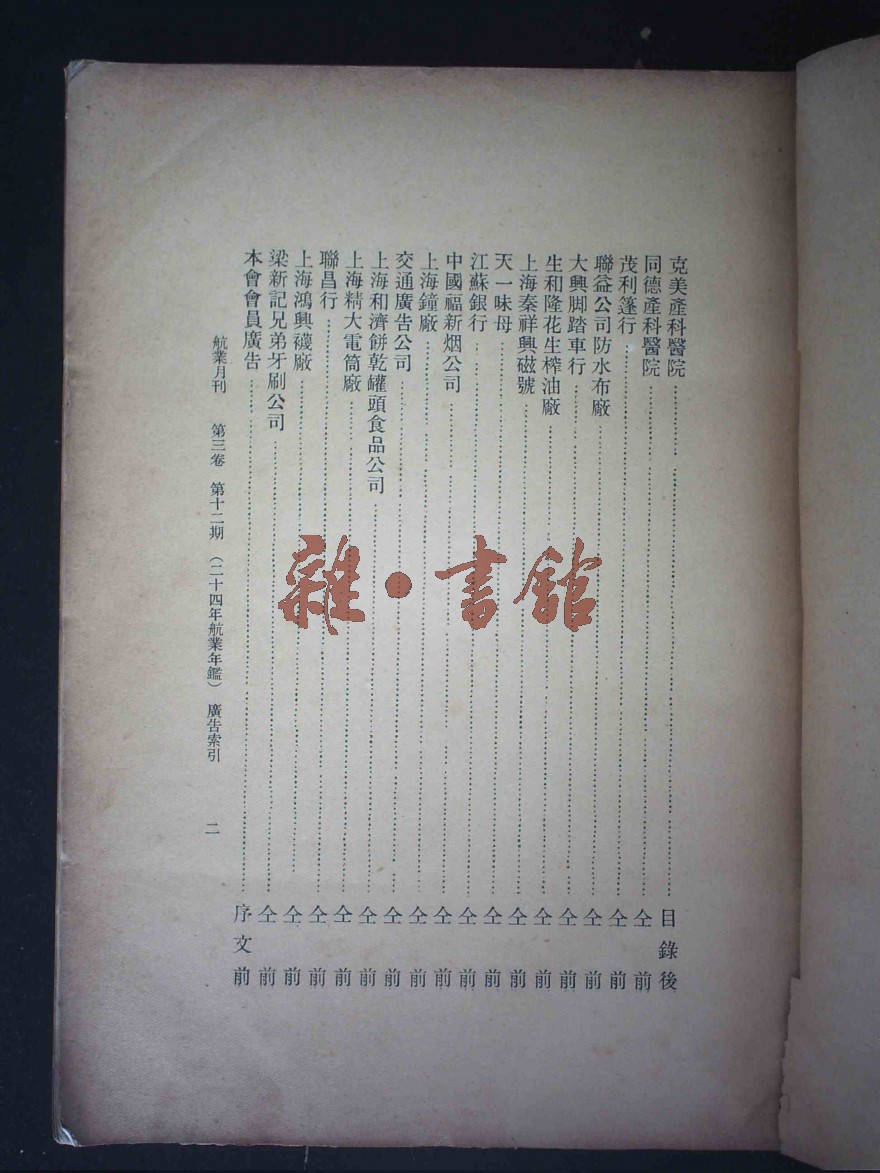 克美產科醫院……目錄後
同德產科醫院……仝前
茂利篷行……仝前
聯益公司防水布廠……仝前
大興脚踏車行……仝前
生和隆花生榨油廠……仝前
上海秦祥興磁號……仝前
天一味母……仝前
江蘇銀行……仝前
中國福新烟公司……仝前
上海鐘廠……仝前
交通廣告公司……仝前
上海和濟餅乾罐頭食品公司……仝前
上海精大電筒廠……仝前
聯昌行……仝前
上海鴻興襪廠……仝前
梁新記兄弟牙刷公司……仝前
本會會員廣告……序文前
航業月刊 第三卷 第十二期（二十四年航業年鑑） 廣告索引 二
雜・書館